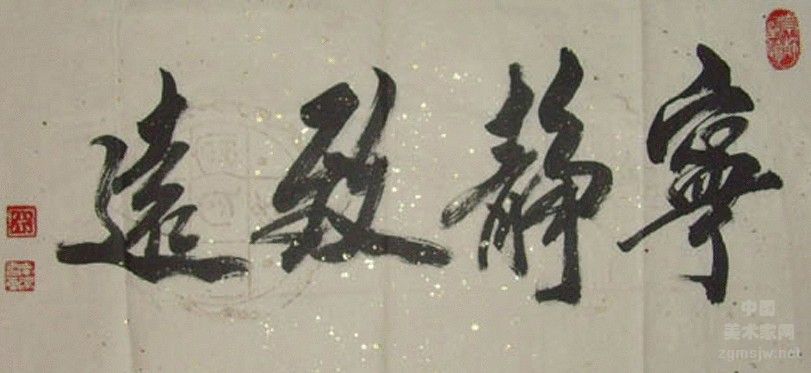 寧靜致遠
中国
美术家网
zgmsjw.net